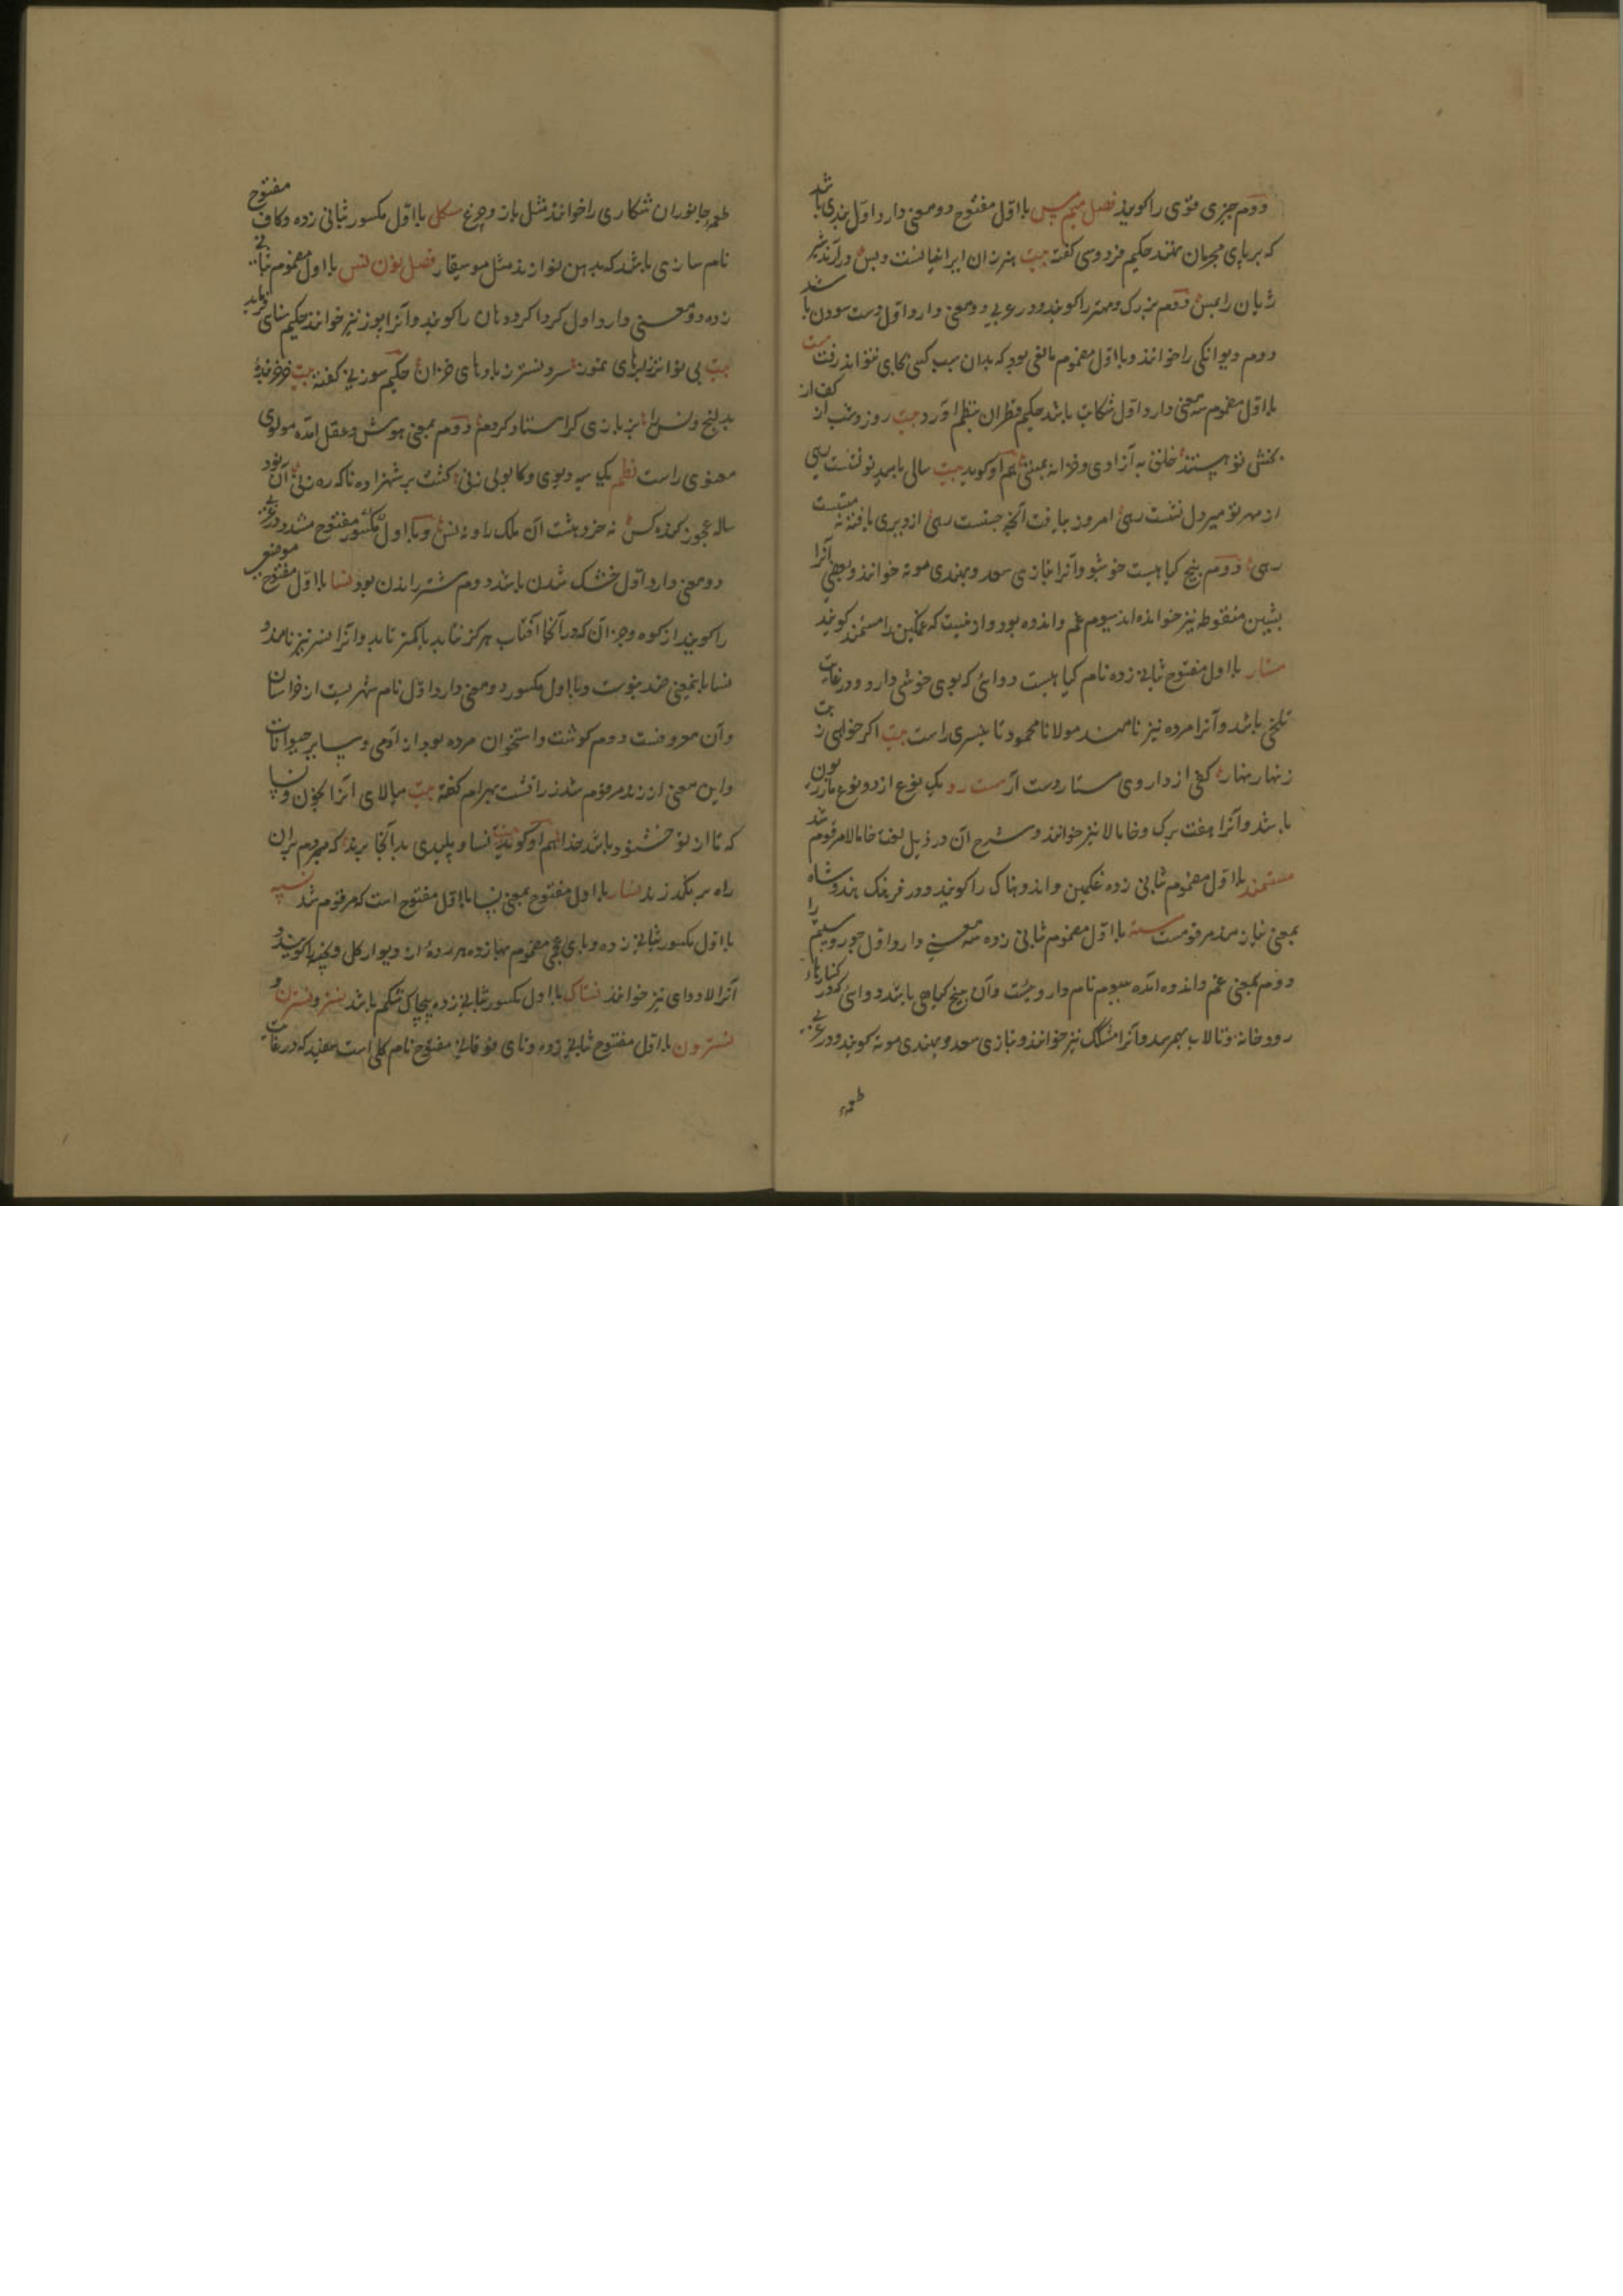 دوم چیزی قوی را کویند فصل میم مس با اول مفتوح دو معنی دارد اول بندی باشد
که بر پای مجرمان نهند حکیم فردوسی کفته بیت هنر زان ایرانیانست و بس در آرند شیر
ژیان را بمس دوم بزرک و مهتر را کویند و در عربی دو معنی دارد اول دست سودن باشد
دوم دیوانکی را خوانند و با اول مضموم مانعی بود که بدان سبب کسی بجای نتواند رفت مست
با اول مضموم سه معنی دارد اول شکایت باشد حکیم قطران بنظم آورد بیت روز و شب از کف از
بخشش تو هستند خلق به آزادی و خزانه بمستی هم او کوید بیت سالی بامید تو نشست رهی
از مهر تو میر دل نشست رهی امروز بیافت آنچه جست رهی از دیری یافتنه نه بمستست
رهی دوم بیخ کیاهیست خوشبو و آنرا بتازی سعد و بهندی موته خوانند و بعضی آنرا
بشین منقوطه نیز خوانده اند سیوم غم و اندوه بود و ازینست که غمکین را مستمند کویند
مستار با اول مفتوح بثانی زده نام کیاهیست دوائی که بوی خوشی دارد و در غایت
تلخی باشد و آنرا مرده نیز نامهند مولانا محمود راست بیت اکر خواهی ز تب
زنهار زنهار کفی از داروی مستار دست آر مست رو یک نوع از دو نوع مازریون
باشد و آنرا هفت برک و خامالا نیز خوانند و شرح آن در ذیل لغت خامالا مرقوم شد
مستمند با اول مضموم بثانی زده غمکین و اندوهناک را کویند و در فرهنک هندوشاه
بمعنی نیازمند مرقومست مسته با اول مضموم بثانی زده سه معنی دارد اول جور و ستم را
دوم بمعنی غم و اندوه آمده سیوم نام داروئیست و آن بیخ کیاهی باشد دوائی که در کنارهاء
رودخانه و تالاب بهم رسد و آنرا مشک نیز خوانند و بتازی سعد و بهندی موته کویند و در عربی
طعمه
طعمه جانوران شکاری را خوانند مثل باز و چرغ مسکل با اول مکسور بثانی زده و کاف مفتوح
نام سازی باشد که بدهن نوازند مثل موسیقار فصل نون نس با اول مضموم بثانی
زده دو معنی دارد اول کرداکرد دهان را کویند و آنرا پوز نیز خوانند حکیم سنائی فرماید
بیت بی نوا سرو نسترن بادهای خزان حکیم سوزنی کفته بیت
دوم بمعنی هوش و عقل آمده مولوی
معنوی راست نظم یک سیه دیوی و کابولی زنی کشت بر شهزاده ناکه ره زنی آن نود
ساله عجوز کنده کس نه خرد هشت آن ملک را و نه نس و با اول مکسور مفتوح مشدد در عربی
دو معنی دارد اول خشک شدن باشد دوم شتر راندن بود نسا با اول مفتوح موضعی
را کویند از کوه و جز آن که در آنجا آفتاب هرکز نتابد یا کمتر تابد و آنرا نسر نیز نامند و
نسا باینمعنی ضد بتوست و با اول مکسور دو معنی دارد اول نام شهریست از خراسان
و آن معروفست دوم کوشت و استخوان مرده بود از آدمی و سایر حیوانات
و این معنی از زند مرقوم شد زراتشت بهرام کفته بیت مبالای آنرا بخون و نسا
که تا از تو خشنود باشد خدا هم او کوید بیت نسا و پلیدی بدآنجا برند که مردم بران
راه بر نکذرند نسار با اول مفتوح بمعنی نسا با اول مفتوح است که مرقوم شد نسپه
با اول مکسور بثانی زده و بای عجمی مضموم بها زده هر رده از دیوار کل و پخته را کویند و
آنرا لاد و دای نیز خوانند نستاک با اول مکسور بثانی زده پیچاک شکم باشد نستر و نسترن و
نسترون با اول مفتوح بثانی زده و تای فوقانی مفتوح نام کلی است سفید که در غایت